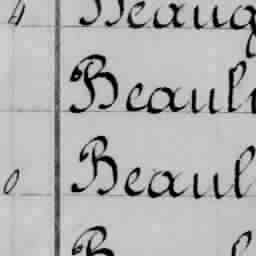 4 Beaug
Beaul
0 Beaul